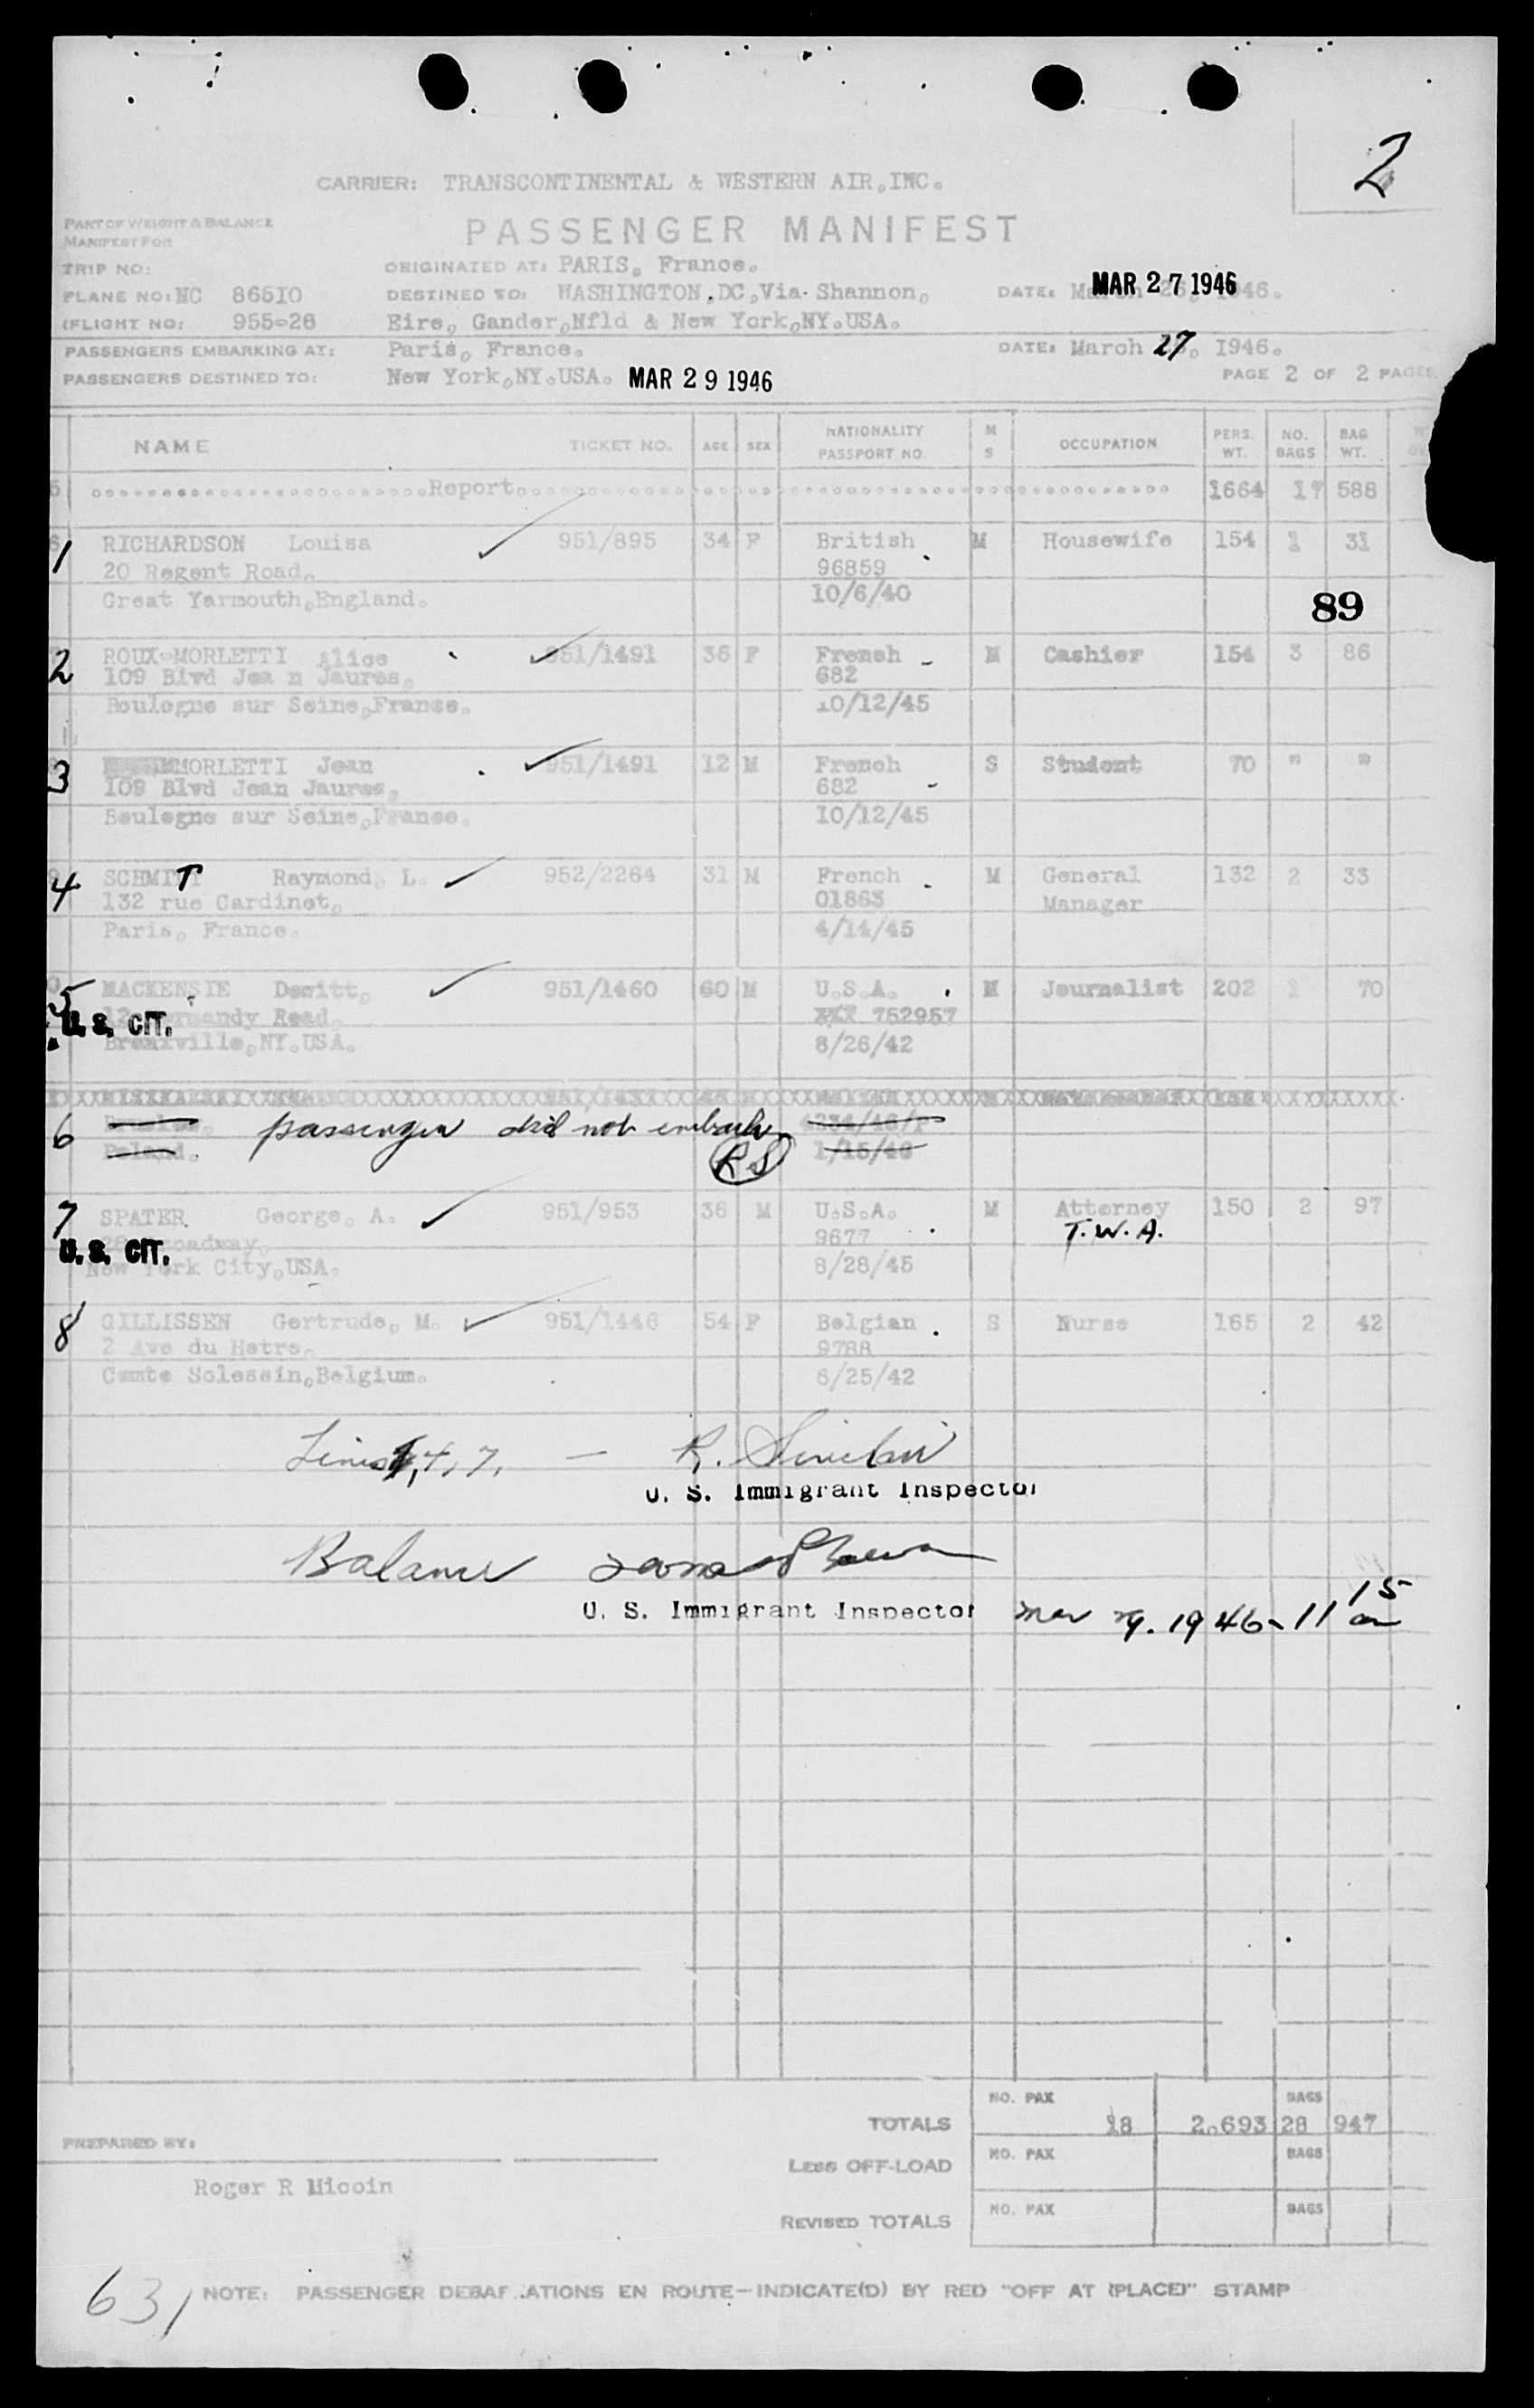 2
CARRIER: TRANSCONTINENTAL & WESTERN AIR, INC.
PART OF WEIGHT & BALANCE
MANIFEST FOR
PASSENGER MANIFEST
TRIP NO: ORIGINATED AT: PARIS, France.
PLANE NO: NC 86510 DESTINED TO: WASHINGTON, DC, Via Shannon, DATE: MAR 27 1946
(FLIGHT NO: 955-26 Eire, Gander, Nfld & New York, NY. USA.
PASSENGERS EMBARKING AT: Paris, France. DATE: March 27, 1946.
PASSENGERS DESTINED TO: New York, NY. USA. MAR 29 1946 PAGE 2 OF 2 PAGES
NAME TICKET NO. AGE SEX NATIONALITY PASSPORT NO. M S OCCUPATION PERS. WT. NO. BAGS BAG WT.
Report 1664 17 588
1 RICHARDSON Louisa 951/895 34 F British M Housewife 154 1 31
20 Regent Road, 96859
Great Yarmouth, England. 10/6/40
89
2 ROUX-MORLETTI Alice 951/1491 36 F French M Cashier 154 3 86
109 Blvd Jea n Jaures, 682
Boulogne sur Seine, France. 10/12/45
3 MORLETTI Jean 951/1491 12 M French S Student 70 " "
109 Blvd Jean Jaures, 682
Boulogne sur Seine, France. 10/12/45
4 SCHMITT Raymond, L. 952/2264 31 M French M General 132 2 33
132 rue Cardinet, 01863 Manager
Paris, France. 4/14/45
5 MACKENSIE Dewitt, 951/1460 60 M U.S.A. M Journalist 202 1 70
U.S. CIT. Road, 752957
Bronxville, NY. USA. 8/26/42
6 passenger did not embark 4234/46/P
Poland. RS 1/15/46
7 SPATER George, A. 951/953 36 M U.S.A. M Attorney 150 2 97
Broadway, 9677 T.W.A.
U.S. CIT.
New York City, USA. 8/28/45
8 GILLISSEN Gertrude, M. 951/1446 54 F Belgian S Nurse 165 2 42
2 Ave du Hetre, 9788
Comte Solessin, Belgium. 6/25/42
Lines 1, 4, 7, — R. Sinclair
U. S. Immigrant Inspector
Balance
U. S. Immigrant Inspector Mar 29. 1946 - 11 15 am
NO. PAX BAGS
TOTALS 18 2,693 28 947
PREPARED BY: NO. PAX BAGS
LESS OFF-LOAD
Roger R Micoin
NO. PAX BAGS
REVISED TOTALS
631 NOTE: PASSENGER ATIONS EN ROUTE—INDICATE(D) BY RED "OFF AT (PLACE)" STAMP